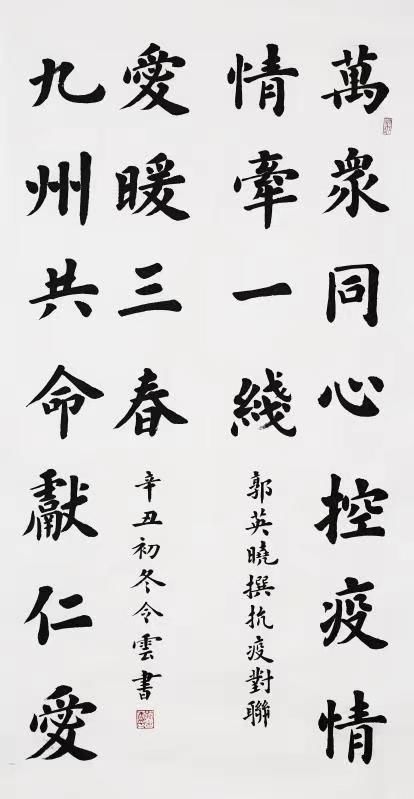 萬衆同心控疫情
情牽一綫
郭英曉撰抗疫對聯
九州共命獻仁愛
愛暖三春
辛丑初冬令雲書